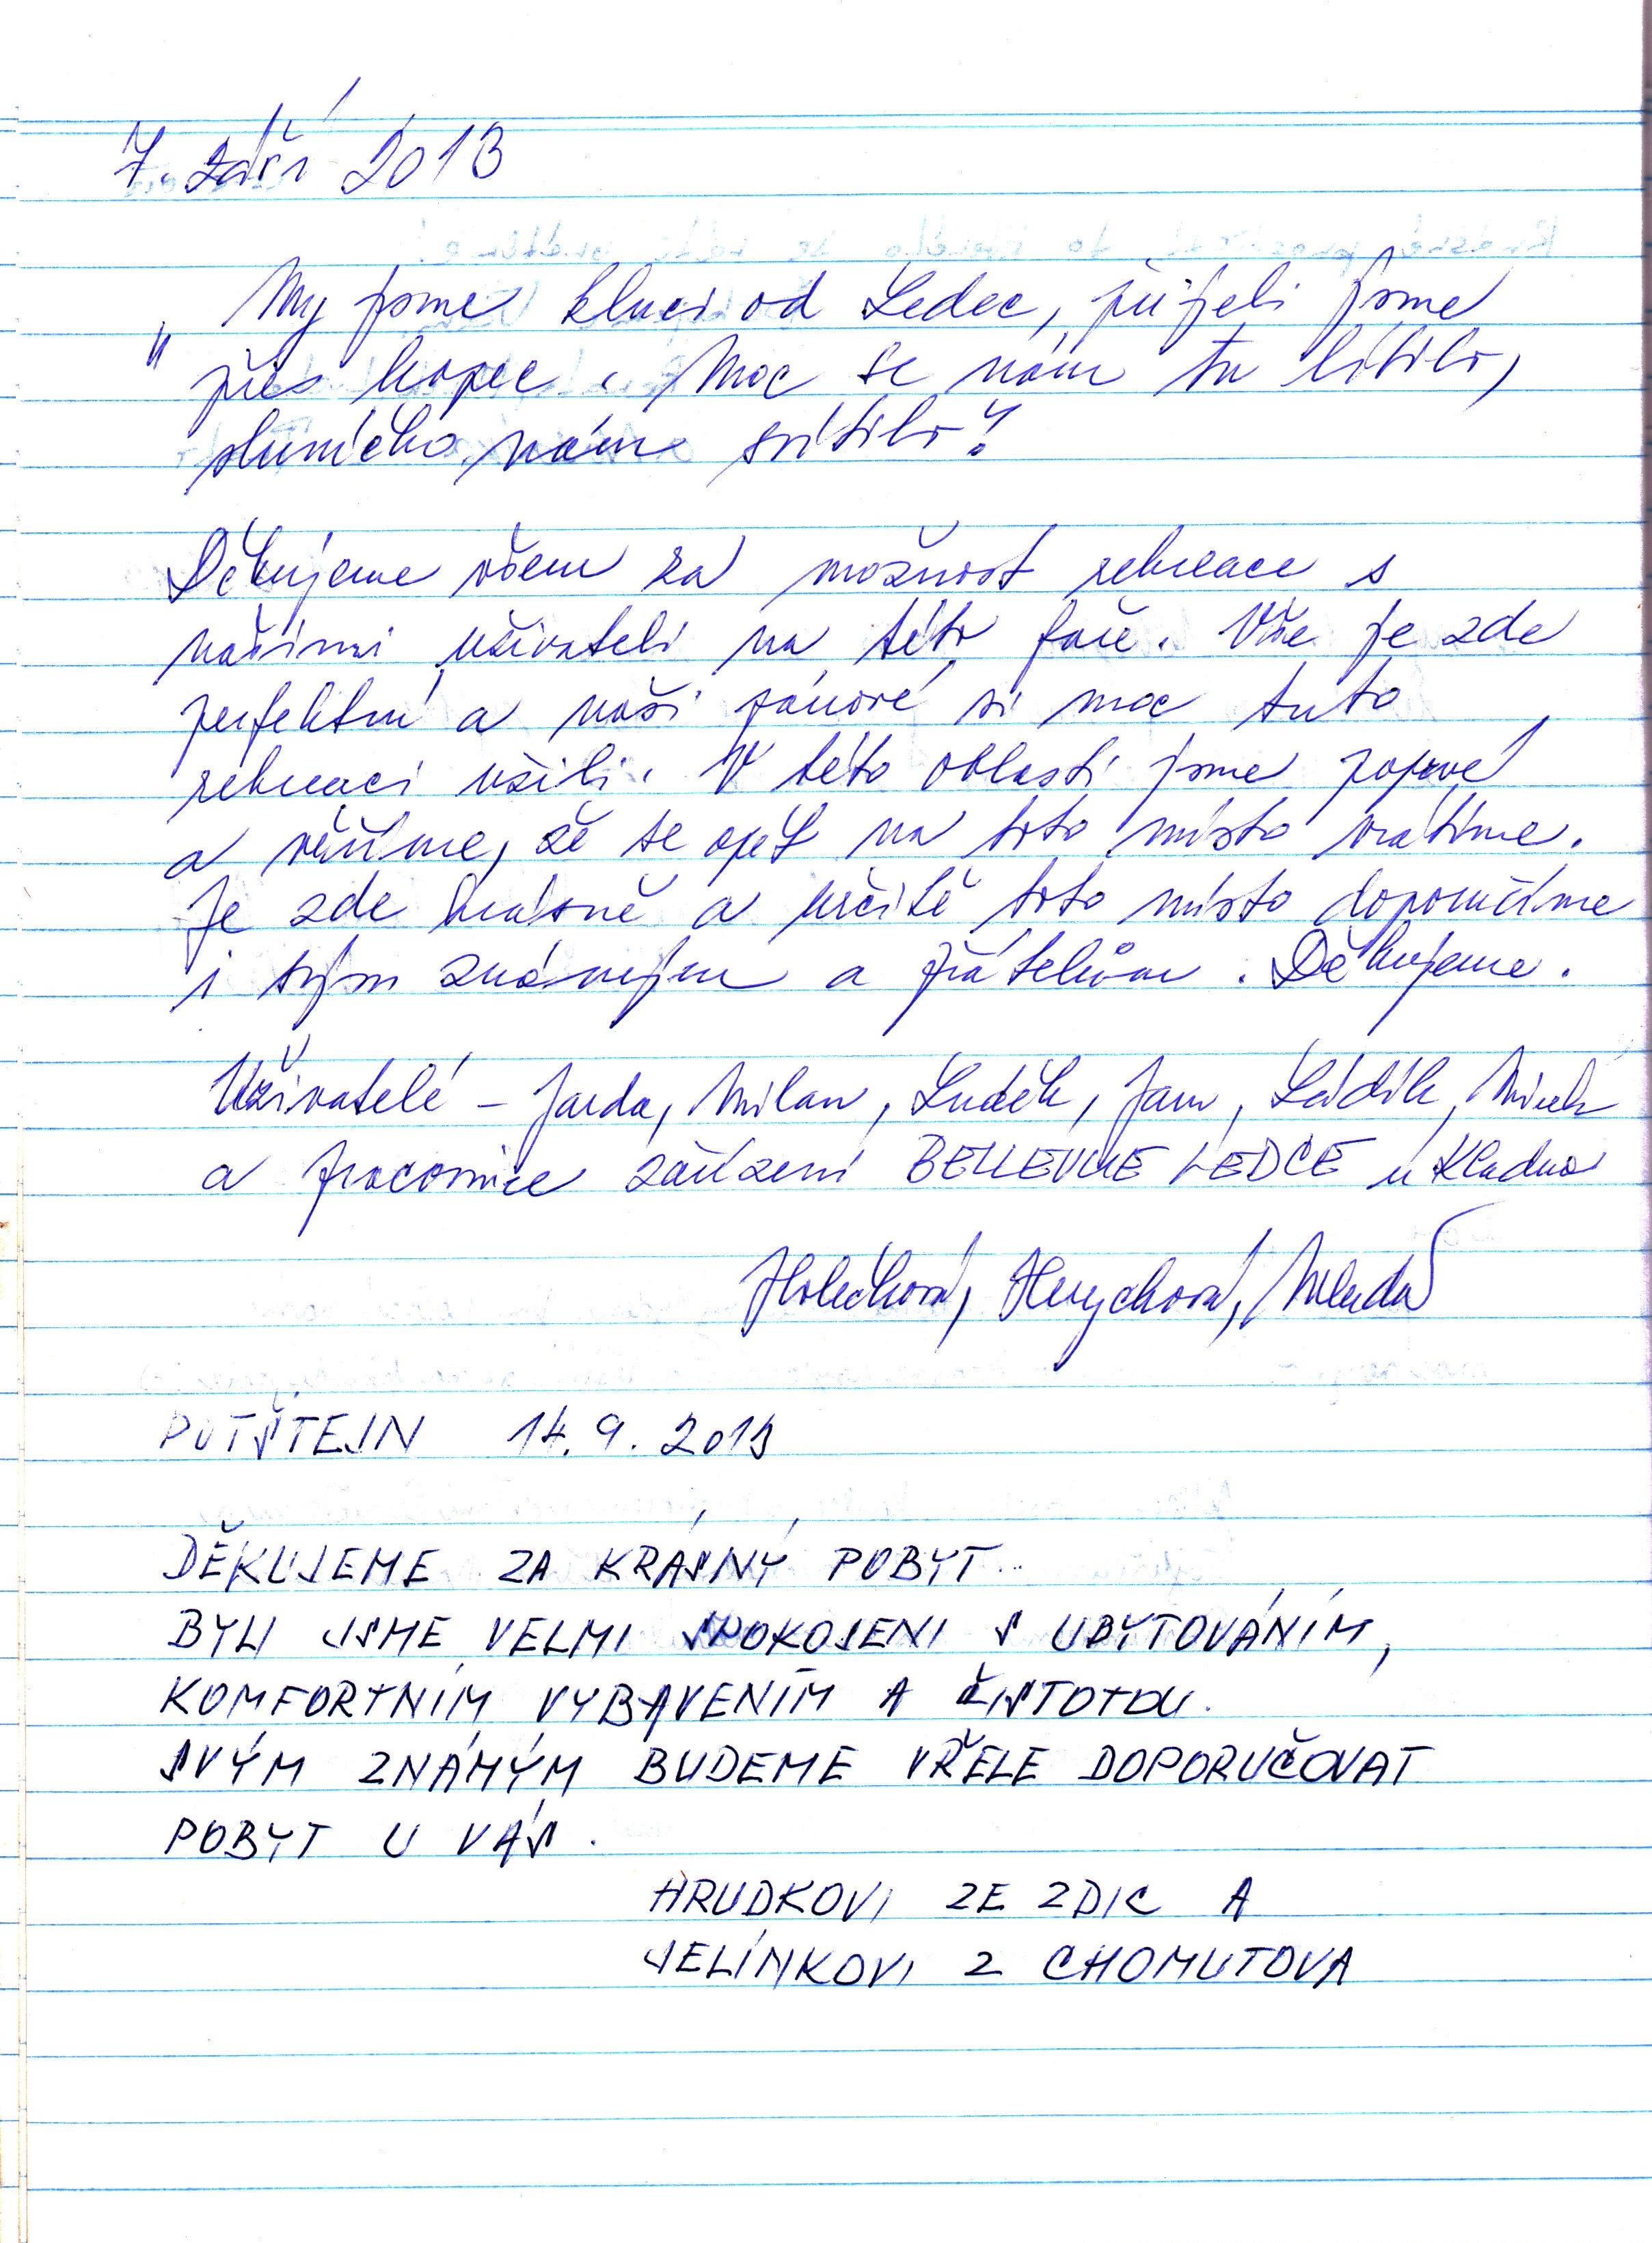 7. září 2013
„ My jsme kluci od Ledec, přijeli jsme
přes kopec. Moc se nám tu líbilo,
sluníčko nám svítilo!"
Děkujeme všem za možnost rekreace s
našimi uživateli na této faře. Vše je zde
perfektní a naši pánové si moc tuto
rekreaci užili. V této oblasti jsme poprvé
a věříme, že se opět na toto místo vrátíme.
Je zde krásně a určitě toto místo doporučíme
i svým známým a přátelům. Děkujeme.
Uživatelé – Jarda, Milan, Luděk, Jan, Ládík, Mirek
a pracovnice zařízení BELLEVUE LEDCE u Kladna
Holečková, Herychová, Mladá
POTŠTEJN 14. 9. 2013
DĚKUJEME ZA KRÁSNÝ POBYT.
BYLI JSME VELMI SPOKOJENI S UBYTOVÁNÍM,
KOMFORTNÍM VYBAVENÍM A ČISTOTOU.
SVÝM ZNÁMÝM BUDEME VŘELE DOPORUČOVAT
POBYT U VÁS.
HRUDKOVI ZE ZDIC A
JELÍNKOVI Z CHOMUTOVA